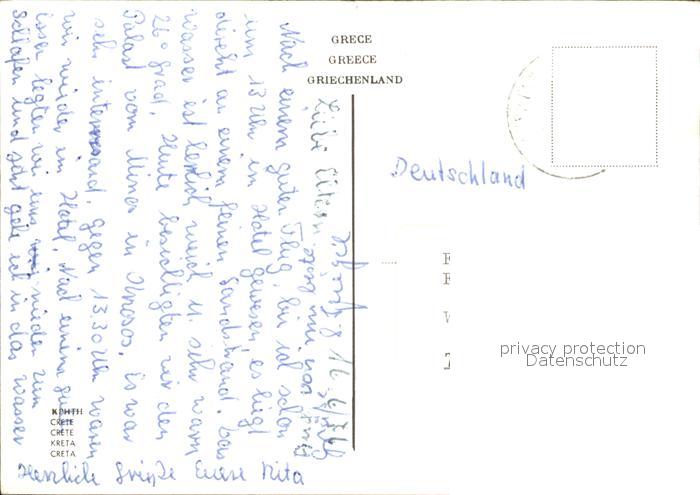 GRECE
GREECE
GRIECHENLAND
Deutschland
Liebe Eltern
Nach einem guten Flug, bin ich schon
um 13 Uhr im Hotel gewesen, es liegt
direkt an einem feinen Sandstrand. Das
Wasser ist herrlich weich u. sehr warm
26 Grad. Heute besichtigten wir den
Palast vom Minos in Knosos, es war
sehr interessand, gegen 13.30 Uhr waren
wir wieder im Hotel. Nach einem guten
essen legten wir uns wieder zum
schlafen und jetzt gehe ich in das Wasser
Herzliche Grüße Euere Rita
ΚΡΗΤΗ
CRETE
CRÈTE
KRETA
CRETA
privacy protection
Datenschutz